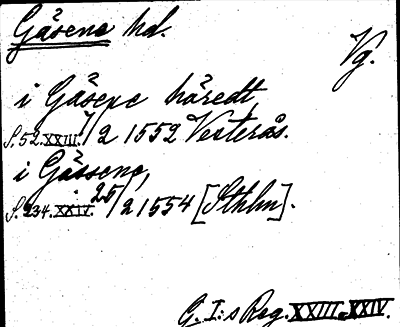 Gäsene hd.
Vg.
i Gäsene häredt
S. 52. XXIII. 7/2 1552 Vesterås.
i Gässene,
S. 234. XXIV. 25/2 1554 [Sthlm].
G. I:s Reg. XXIII, XXIV.